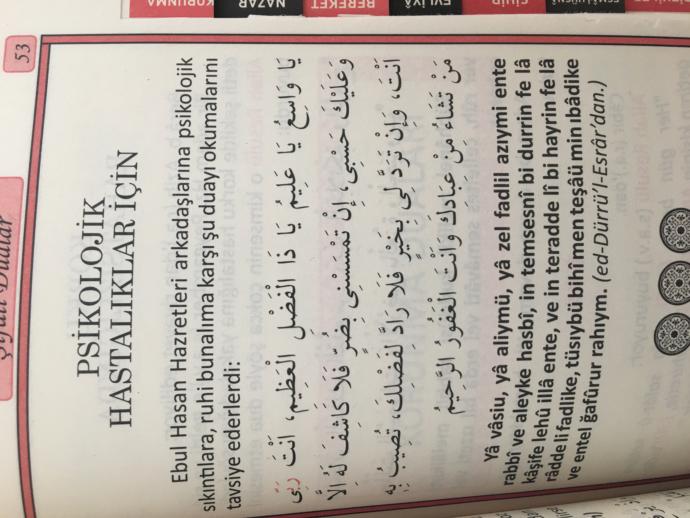 KORUNMA
NAZAR
BEREKET
EVLİYÂ
SİHİR
53
Şifalı Dualar
PSİKOLOJİK
HASTALIKLAR İÇİN
Ebul Hasan Hazretleri arkadaşlarına psikolojik
sıkıntılara, ruhi bunalıma karşı şu duayı okumalarını
tavsiye ederlerdi:
يَا وَاسِعُ يَا عَلِيمُ يَا ذَا الْفَضْلِ الْعَظِيمِ، اَنْتَ رَبِّى
وَعَلَيْكَ حَسْبِى، اِنْ تَمْسَسْنِى بِضُرٍّ فَلَا كَاشِفَ لَهُ اِلَّا
اَنْتَ، وَاِنْ تَرَدْ لِى بِخَيْرٍ فَلَا رَادَّ لِفَضْلِكَ، تُصِيبُ بِهِ
مَنْ تَشَاءُ مِنْ عِبَادِكَ وَاَنْتَ الْغَفُورُ الرَّحِيمُ
Yâ vâsiu, yâ aliymü, yâ zel fadlil azıymi ente
rabbî ve aleyke hasbî, in temsesnî bi durrin fe lâ
kâşife lehû illâ ente, ve in teradde lî bi hayrin fe lâ
râdde li fadlike, tüsıybü bihî men teşâü min ibâdike
ve entel ğafûrur rahıym. (ed-Dürrü'l-Esrâr'dan.)